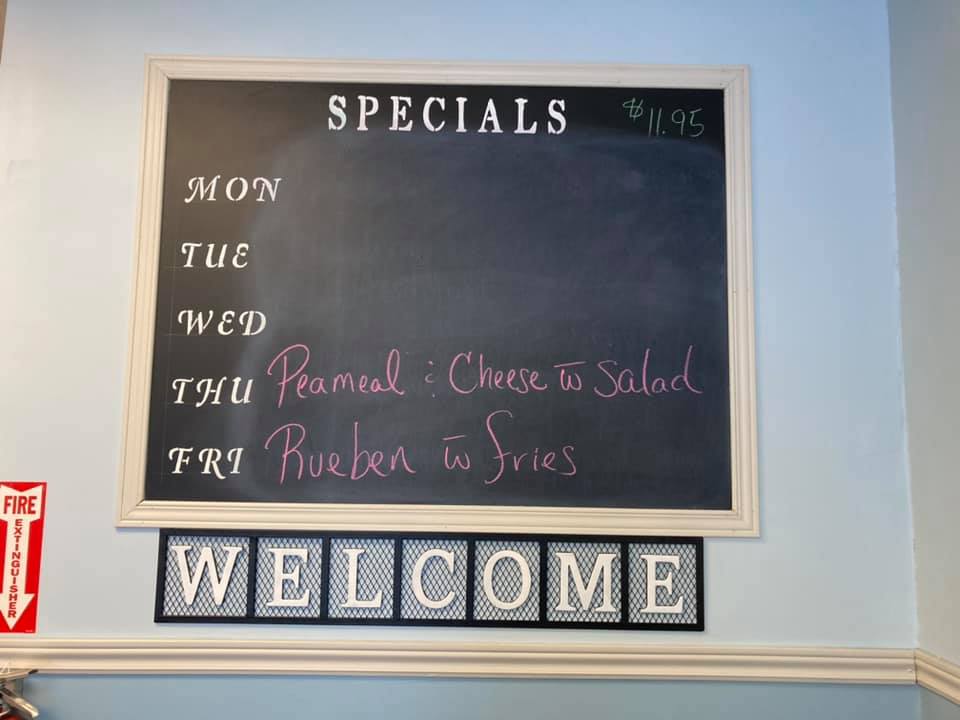 SPECIALS $11.95
MON
TUE
WED
THU Peameal & Cheese w Salad
FRI Rueben w fries
WELCOME
FIRE
EXTINGUISHER